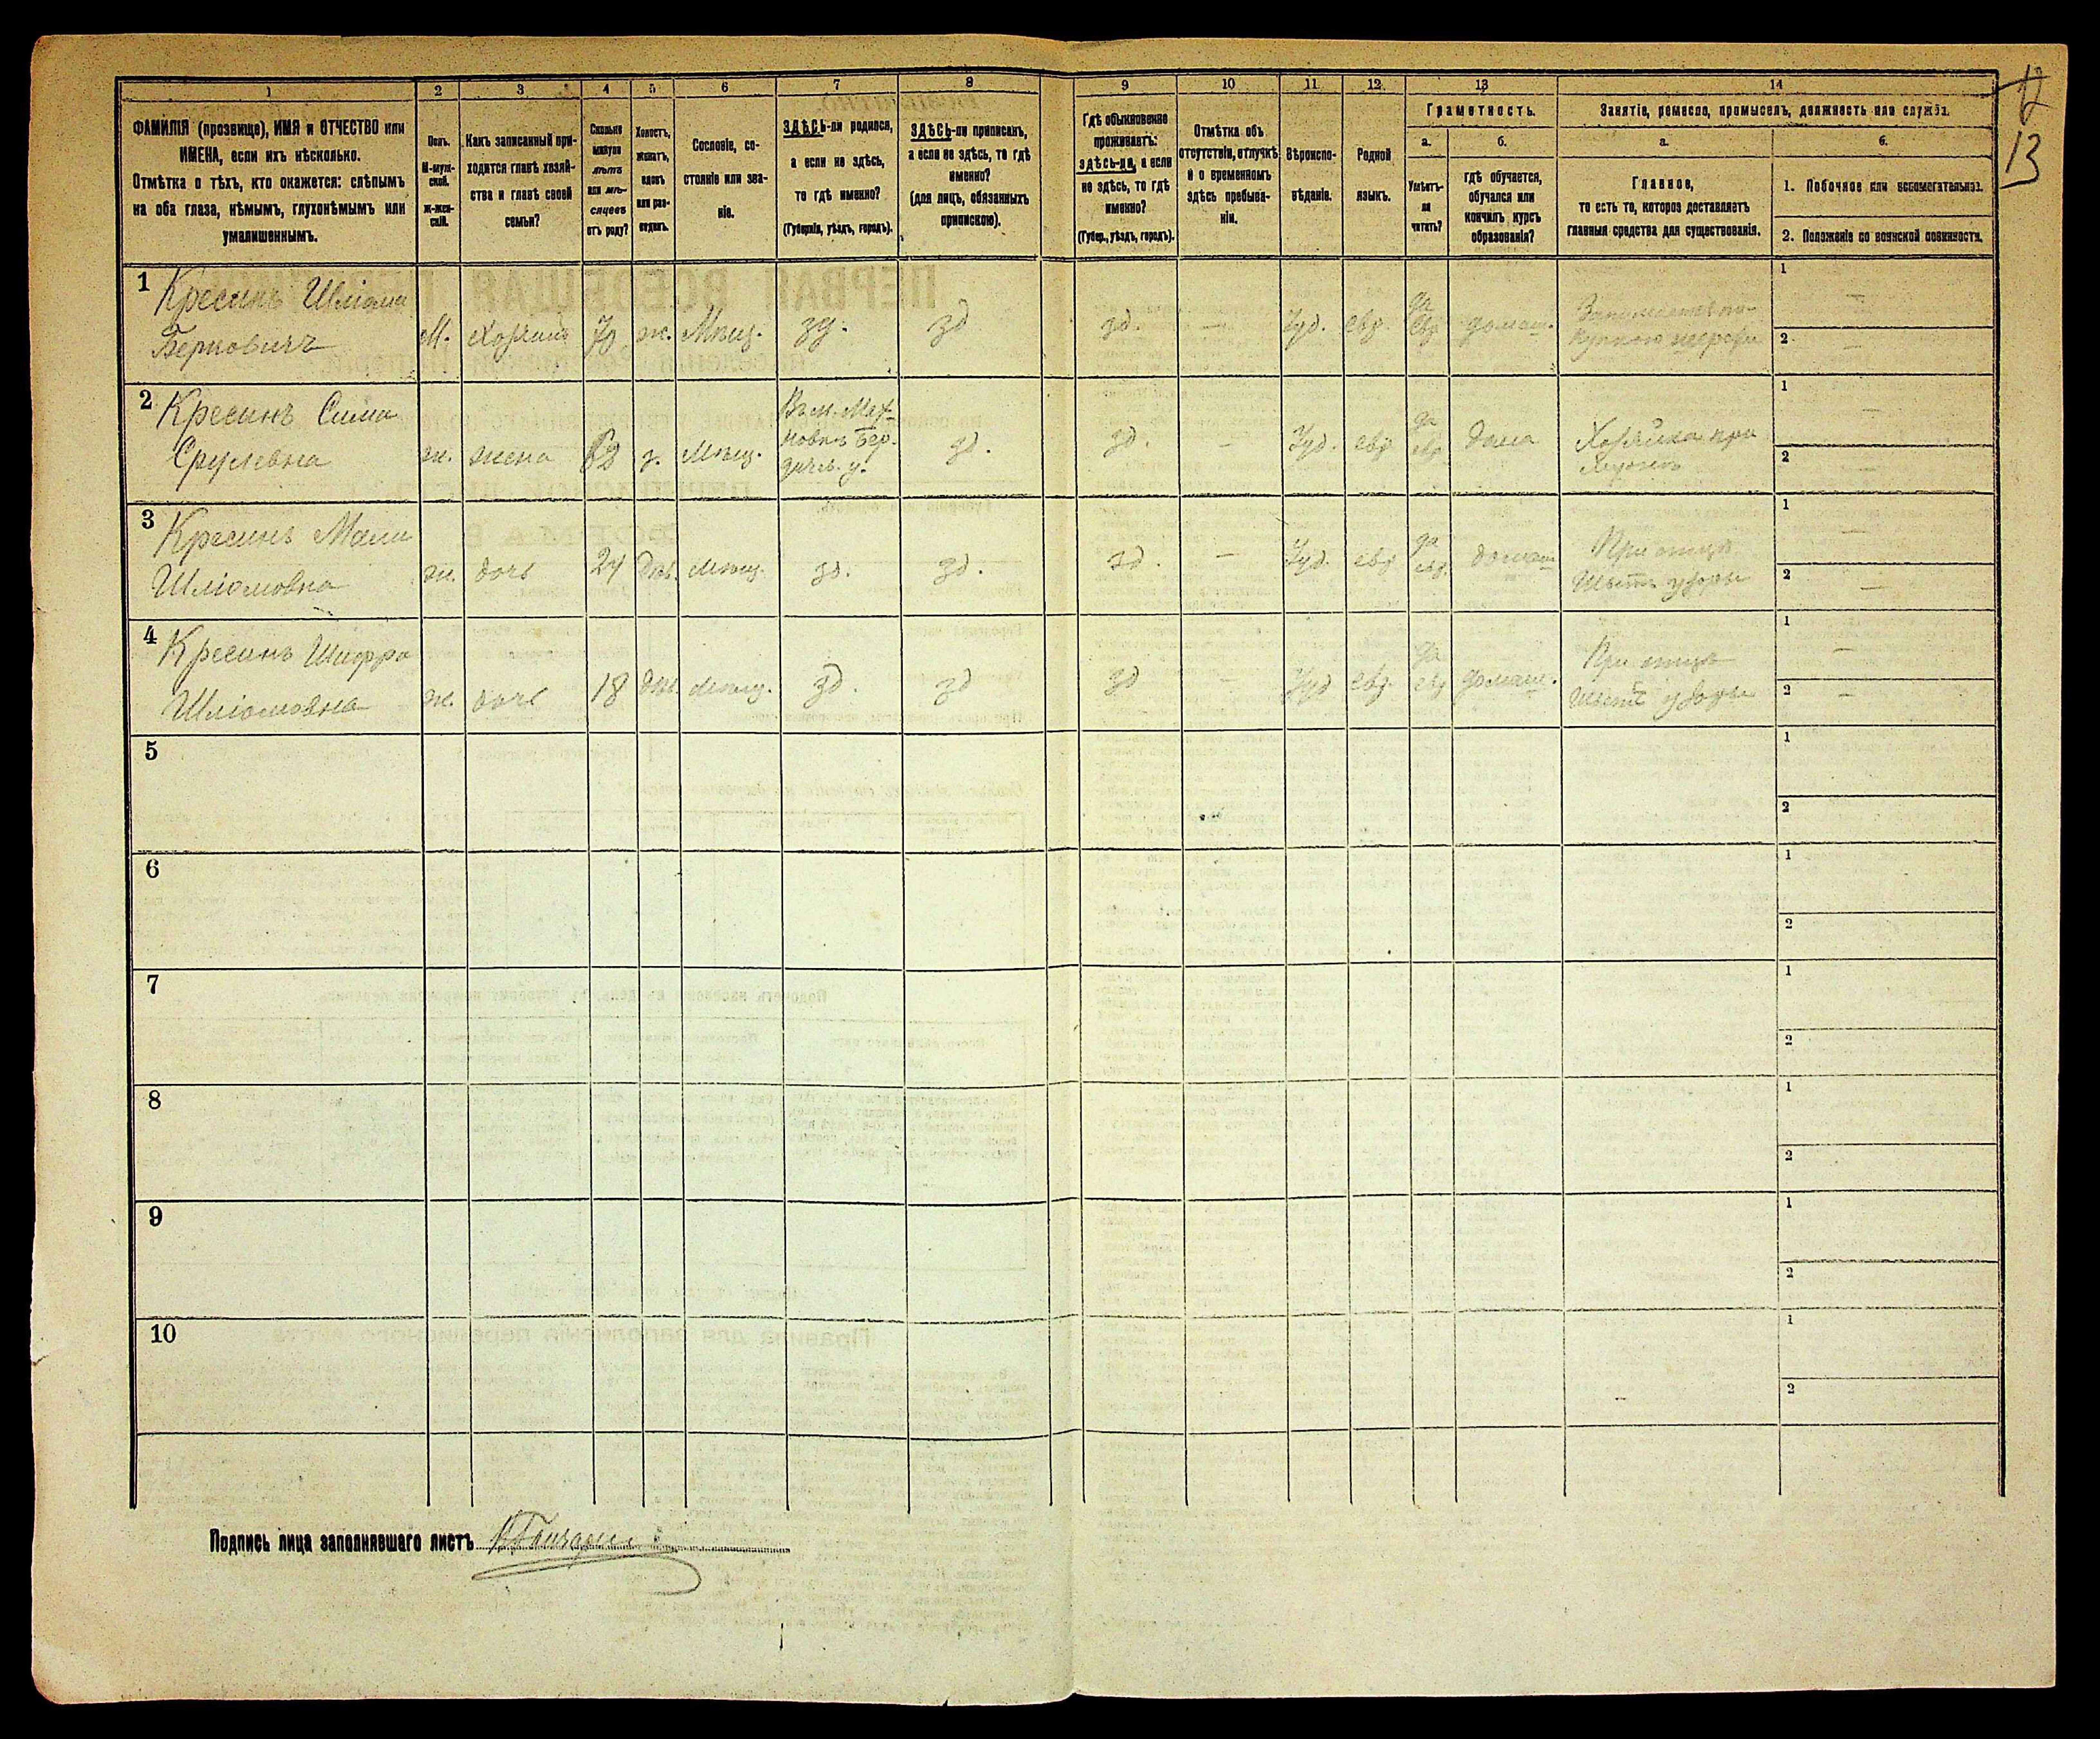 1 2 3 4 5 6 7 8 9 10 11 12 13 14
ФАМИЛІЯ (прозвище), ИМЯ и ОТЧЕСТВО или
ИМЕНА, если ихъ нѣсколько.
Отмѣтка о тѣхъ, кто окажется: слѣпымъ
на оба глаза, нѣмымъ, глухонѣмымъ или
умалишеннымъ.
Полъ.
М-муж-
ской.
ж-жен-
скій.
Какъ записанный при-
ходится главѣ хозяй-
ства и главѣ своей
семьи?
Сколько
минуло
лѣтъ
или мѣ-
сяцевъ
отъ роду?
Холостъ,
женатъ,
вдовъ
или раз-
веденъ.
Сословіе, со-
стояніе или зва-
ніе.
ЗДѢСЬ-ли родился,
а если не здѣсь,
то гдѣ именно?
(Губернія, уѣздъ, городъ).
ЗДѢСЬ-ли приписанъ,
а если не здѣсь, то гдѣ
именно?
(для лицъ, обязанныхъ
припискою).
Гдѣ обыкновенно
проживаетъ:
здѣсь-ли, а если
не здѣсь, то гдѣ
именно?
(Губер., уѣздъ, городъ).
Отмѣтка объ
отсутствіи, отлучкѣ
и о временномъ
здѣсь пребыва-
ніи.
Вѣроиспо-
вѣданіе.
Родной
языкъ.
Грамотность.
а.
Умѣетъ-
ли
читать?
б.
гдѣ обучается,
обучался или
кончилъ курсъ
образованія?
Занятіе, ремесло, промыселъ, должность или служба.
а.
Главное,
то есть то, которое доставляетъ
главныя средства для существованія.
б.
1. Побочное или вспомогательное.
2. Положеніе по воинской повинности.
12
13
1 Кресинъ Шліома
Берковичъ
М. Хозяинъ 70 ж. Мѣщ. зд. зд зд. — Іуд. евр. да евр домаш.
1 —
2 —
2 Кресинъ Сима
Срулевна
ж. жена з. Мѣщ.
Въ м. Мах-
новкѣ Бер-
дичв. у.
зд. зд. — Іуд. евр. да евр. дома
Хозяйка при
1 —
2 —
3 Кресинъ Мали
Шліомовна
ж. дочь 24 дѣв. Мѣщ. зд. зд. зд. — Іуд. евр да евр. домаш
При отцѣ
1 —
2 —
4 Кресинъ Шифра
Шліомовна
ж. дочь 18 дѣв. Мѣщ. зд. зд зд — Іуд евр. да евр домаш.
При отцѣ
1 —
2 —
5 1
2
6 1
2
7 1
2
8 1
2
9 1
2
10 1
2
Подпись лица заполнявшаго листъ